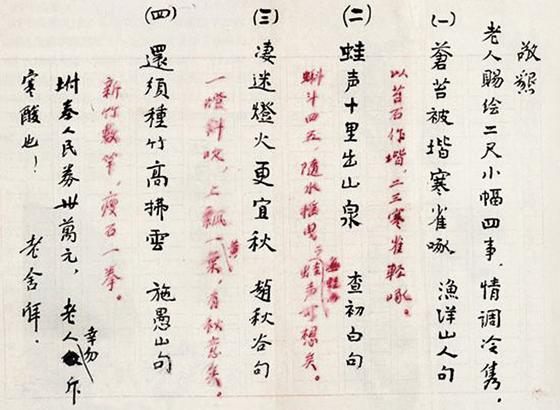 敬懇
老人賜绘二尺小幅四事，情调冷隽。
(一) 蒼苔被堦寒雀啄 漁洋山人句
以苔石作堦，二三寒雀輕啄。
(二) 蛙声十里出山泉 查初白句
蝌斗四五，隨水摇曳；無蛙而蛙声可想矣。
(三) 凄迷燈火更宜秋 趙秋谷句
一燈斜吹，上飄一黄葉，有秋意矣。
(四) 還須種竹高拂雲 施愚山句
新竹數竿，瘦石一拳。
坿奉人民券卅萬元，老人幸勿斥
寒酸也！ 老舍拜．